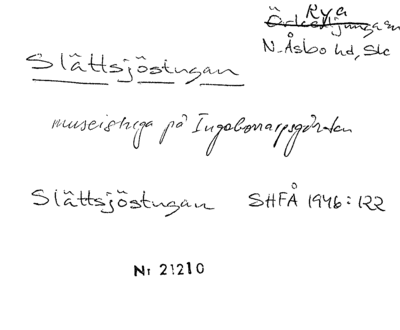 Rya
Örkelljunga sn
N. Åsbo hd, Sk
Slättsjöstugan
museistuga på Ingelbonarpsgården
Slättsjöstugan SHFÅ 1946:122
Nr 21210